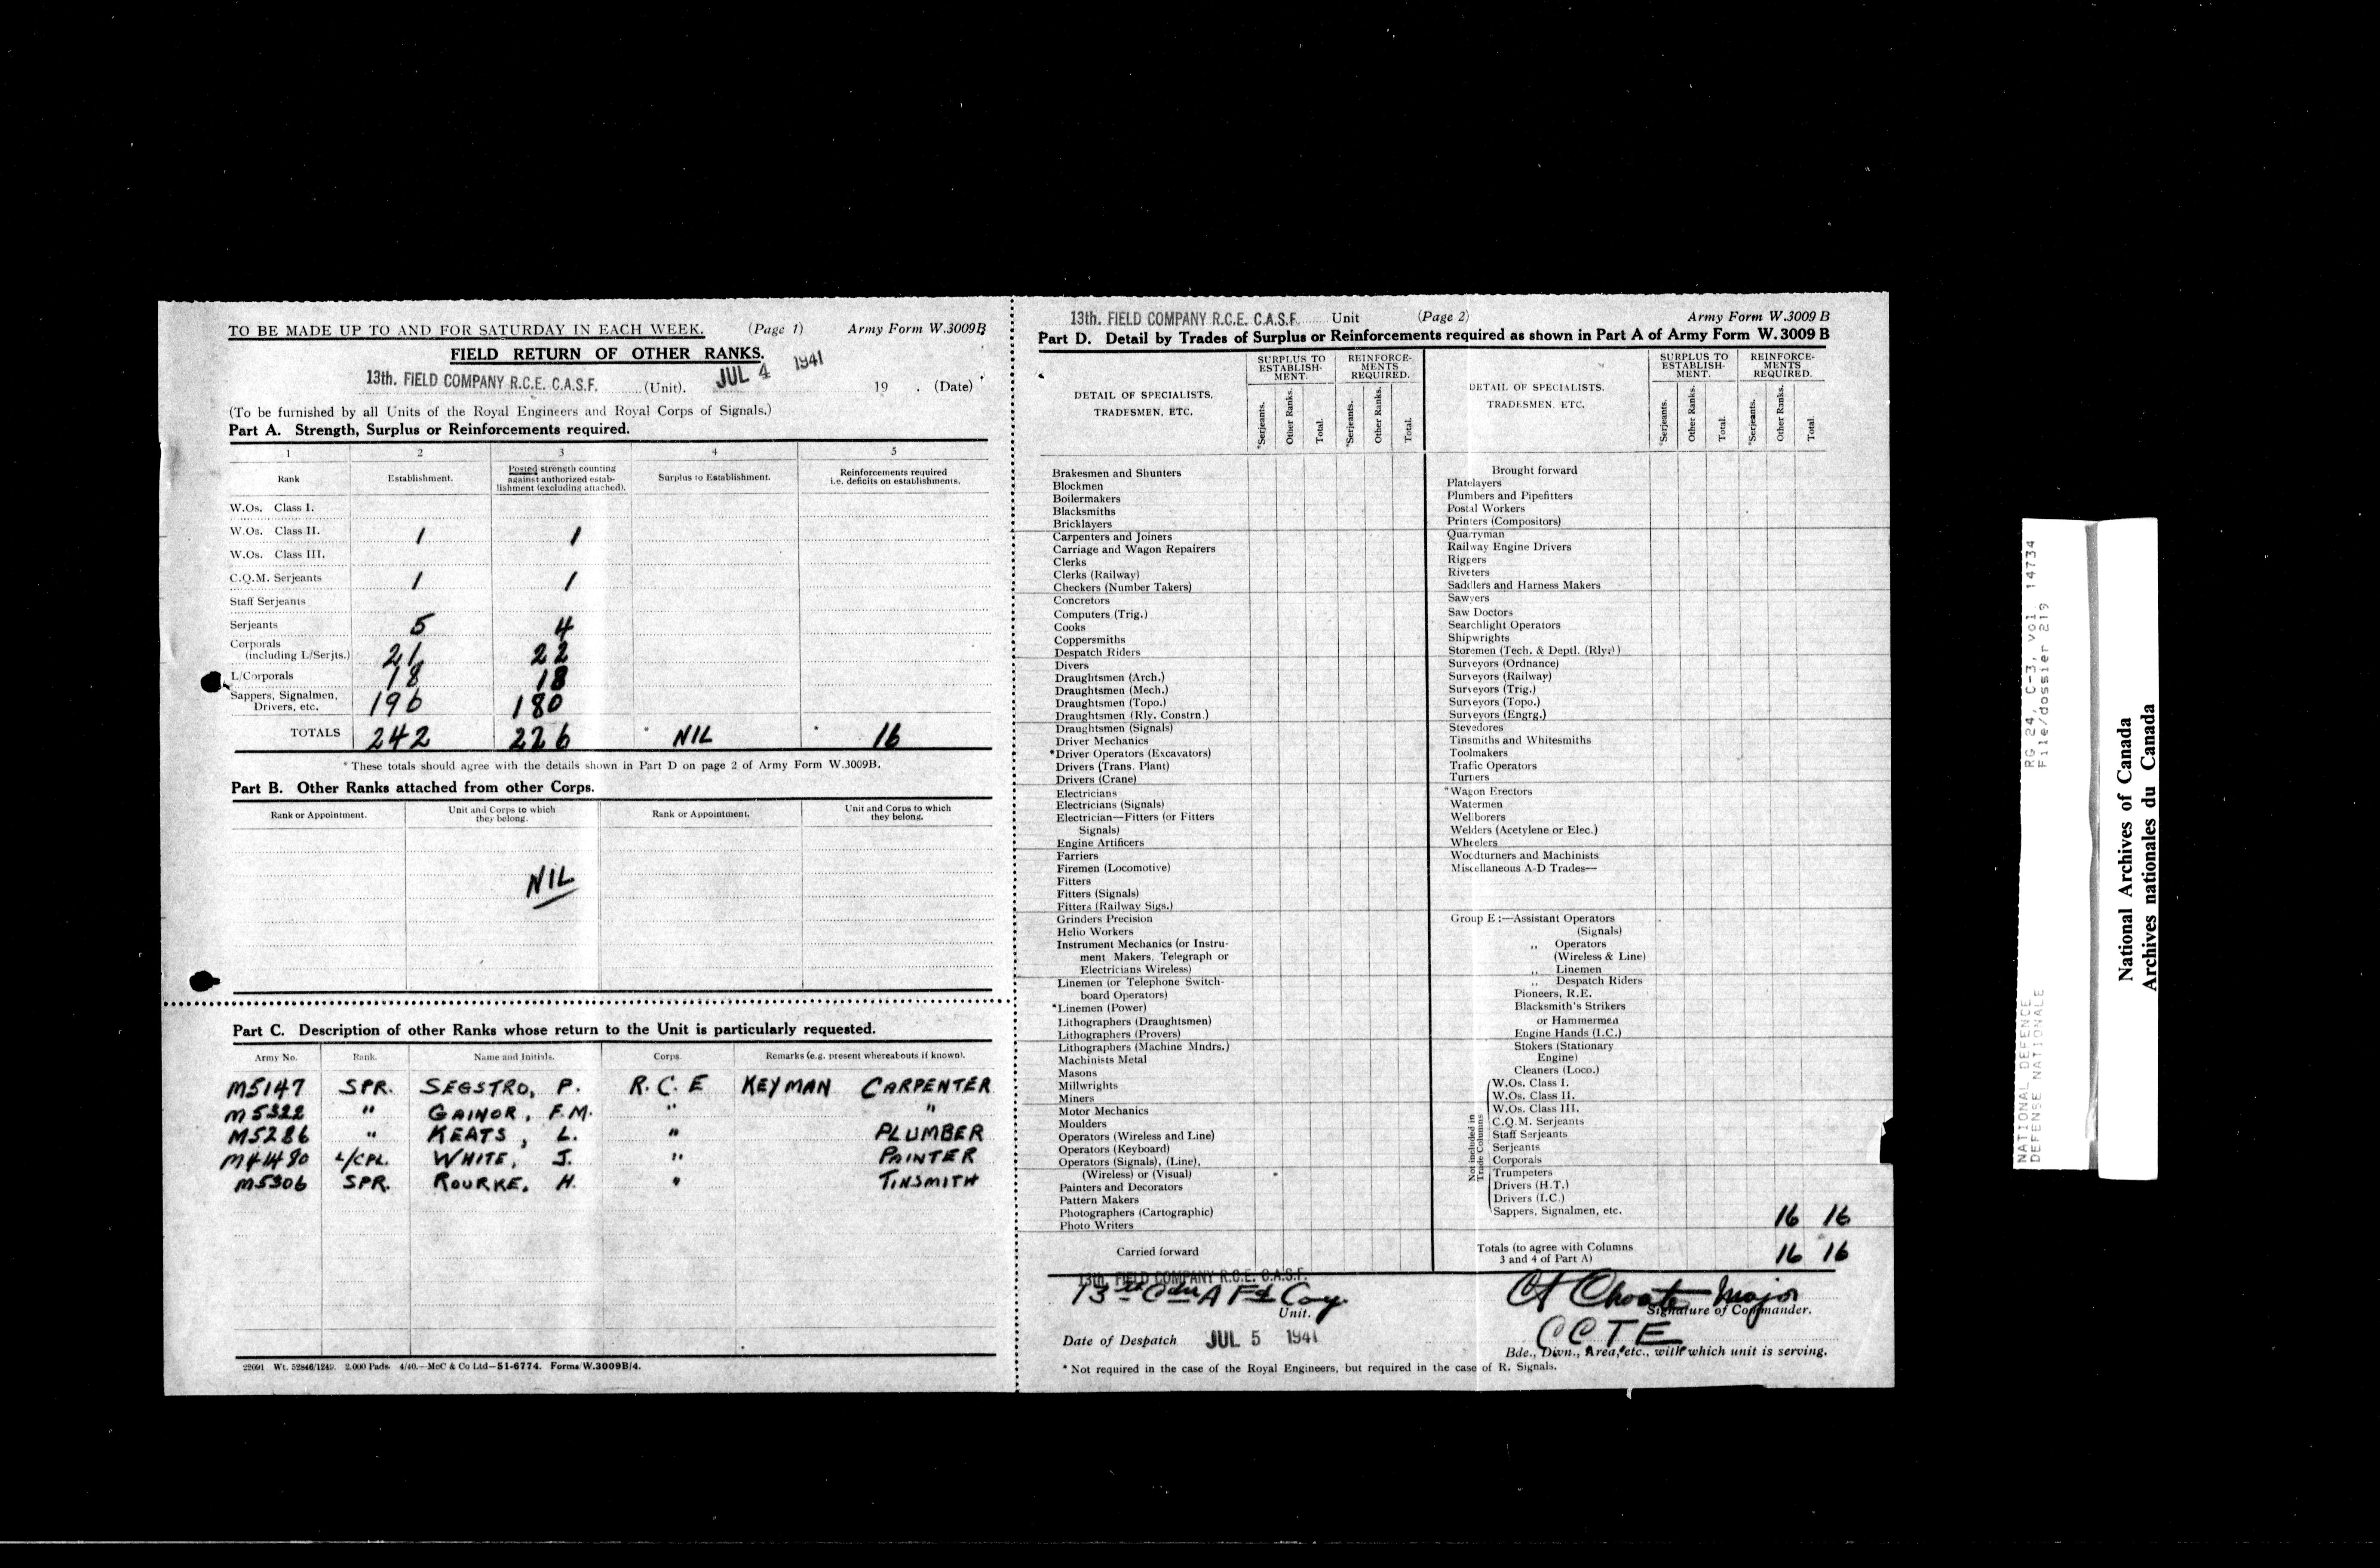 TO BE MADE UP TO AND FOR SATURDAY IN EACH WEEK. (Page 1) Army Form W.3009B
FIELD RETURN OF OTHER RANKS.
13th. FIELD COMPANY R.C.E. C.A.S.F. (Unit). JUL 4 1941 19 . (Date)
(To be furnished by all Units of the Royal Engineers and Royal Corps of Signals.)
Part A. Strength, Surplus or Reinforcements required.
1 2 3 4 5
Rank Establishment. Posted strength counting against authorized establishment (excluding attached). Surplus to Establishment. Reinforcements required i.e. deficits on establishments.
W.Os. Class I.
W.Os. Class II. 1 1
W.Os. Class III.
C.Q.M. Serjeants 1 1
Staff Serjeants
Serjeants 5 4
Corporals
(including L/Serjts.) 21 22
L/Corporals 18 18
Sappers, Signalmen,
Drivers, etc. 196 180
TOTALS 242 226 * NIL * 16
* These totals should agree with the details shown in Part D on page 2 of Army Form W.3009B.
Part B. Other Ranks attached from other Corps.
Rank or Appointment. Unit and Corps to which they belong. Rank or Appointment. Unit and Corps to which they belong.
NIL
Part C. Description of other Ranks whose return to the Unit is particularly requested.
Army No. Rank. Name and Initials. Corps. Remarks (e.g. present whereabouts if known).
M5147 SPR. SEGSTRO, P. R.C.E KEYMAN CARPENTER
M5322 " GAINOR, F.M. " "
M5286 " KEATS, L. " PLUMBER
M41490 L/CPL. WHITE, J. " PAINTER
M5306 SPR. ROURKE, H. " TINSMITH
22691 Wt. 52846/1249. 2,000 Pads. 4/40.—McC & Co Ltd—51-6774. Forms/W.3009B/4.
13th. FIELD COMPANY R.C.E. C.A.S.F. Unit (Page 2) Army Form W.3009 B
Part D. Detail by Trades of Surplus or Reinforcements required as shown in Part A of Army Form W.3009 B
DETAIL OF SPECIALISTS, TRADESMEN, ETC. SURPLUS TO ESTABLISHMENT. REINFORCEMENTS REQUIRED. DETAIL OF SPECIALISTS, TRADESMEN, ETC. SURPLUS TO ESTABLISHMENT. REINFORCEMENTS REQUIRED.
*Serjeants. Other Ranks. Total. *Serjeants. Other Ranks. Total. *Serjeants. Other Ranks. Total. *Serjeants. Other Ranks. Total
Brakesmen and Shunters
Blockmen
Boilermakers
Blacksmiths
Bricklayers
Carpenters and Joiners
Carriage and Wagon Repairers
Clerks
Clerks (Railway)
Checkers (Number Takers)
Concretors
Computers (Trig.)
Cooks
Coppersmiths
Despatch Riders
Divers
Draughtsmen (Arch.)
Draughtsmen (Mech.)
Draughtsmen (Topo.)
Draughtsmen (Rly. Constrn.)
Draughtsmen (Signals)
Driver Mechanics
*Driver Operators (Excavators)
Drivers (Trans. Plant)
Drivers (Crane)
Electricians
Electricians (Signals)
Electrician—Fitters (or Fitters
Signals)
Engine Artificers
Farriers
Firemen (Locomotive)
Fitters
Fitters (Signals)
Fitters (Railway Sigs.)
Grinders Precision
Helio Workers
Instrument Mechanics (or Instru-
ment Makers, Telegraph or
Electricians Wireless)
Linemen (or Telephone Switch-
board Operators)
*Linemen (Power)
Lithographers (Draughtsmen)
Lithographers (Provers)
Lithographers (Machine Mndrs.)
Machinists Metal
Masons
Millwrights
Miners
Motor Mechanics
Moulders
Operators (Wireless and Line)
Operators (Keyboard)
Operators (Signals), (Line),
(Wireless) or (Visual)
Painters and Decorators
Pattern Makers
Photographers (Cartographic)
Photo Writers
Carried forward
Brought forward
Platelayers
Plumbers and Pipefitters
Postal Workers
Printers (Compositors)
Quarryman
Railway Engine Drivers
Riggers
Riveters
Saddlers and Harness Makers
Sawyers
Saw Doctors
Searchlight Operators
Shipwrights
Storemen (Tech. & Deptl. (Rly.))
Surveyors (Ordnance)
Surveyors (Railway)
Surveyors (Trig.)
Surveyors (Topo.)
Surveyors (Engrg.)
Stevedores
Tinsmiths and Whitesmiths
Toolmakers
Traffic Operators
Turners
*Wagon Erectors
Watermen
Wellborers
Welders (Acetylene or Elec.)
Wheelers
Woodturners and Machinists
Miscellaneous A-D Trades—
Group E :—Assistant Operators
(Signals)
,, Operators
(Wireless & Line)
,, Linemen
,, Despatch Riders
Pioneers, R.E.
Blacksmith's Strikers
or Hammermen
Engine Hands (I.C.)
Stokers (Stationary
Engine)
Cleaners (Loco.)
Not included in Trade Columns
W.Os. Class I.
W.Os. Class II.
W.Os. Class III.
C.Q.M. Serjeants
Staff Serjeants
Serjeants
Corporals
Trumpeters
Drivers (H.T.)
Drivers (I.C.)
Sappers, Signalmen, etc. 16 16
Totals (to agree with Columns
3 and 4 of Part A) 16 16
13th. FIELD COMPANY R.C.E. C.A.S.F.
13th Cdn A Fd Coy
Unit.
Choate Major
Signature of Commander.
Date of Despatch JUL 5 1941
CCTE
Bde., Divn., Area, etc., with which unit is serving.
* Not required in the case of the Royal Engineers, but required in the case of R. Signals.
NATIONAL DEFENCE RG 24, C-3, vol. 14734
DEFENSE NATIONALE File/dossier 219
National Archives of Canada
Archives nationales du Canada